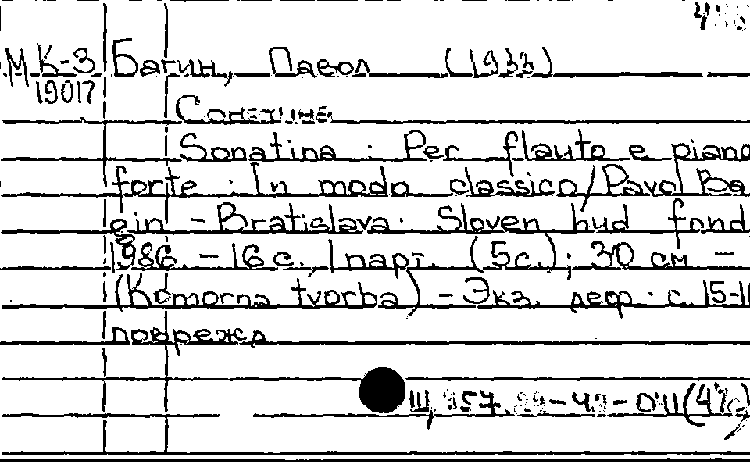 МК-3 Багин, Павол (1933)
19017
Сонатина
Sonatina : Per flauto e piano
forte : In modo classico / Pavol Ba
gin - Bratislava: Sloven hud fond
1986. - 16 с., 1 парт. (5 с.); 30 см -
(Komorna tvorba) - Экз. деф.: с. 15-1
поврежд